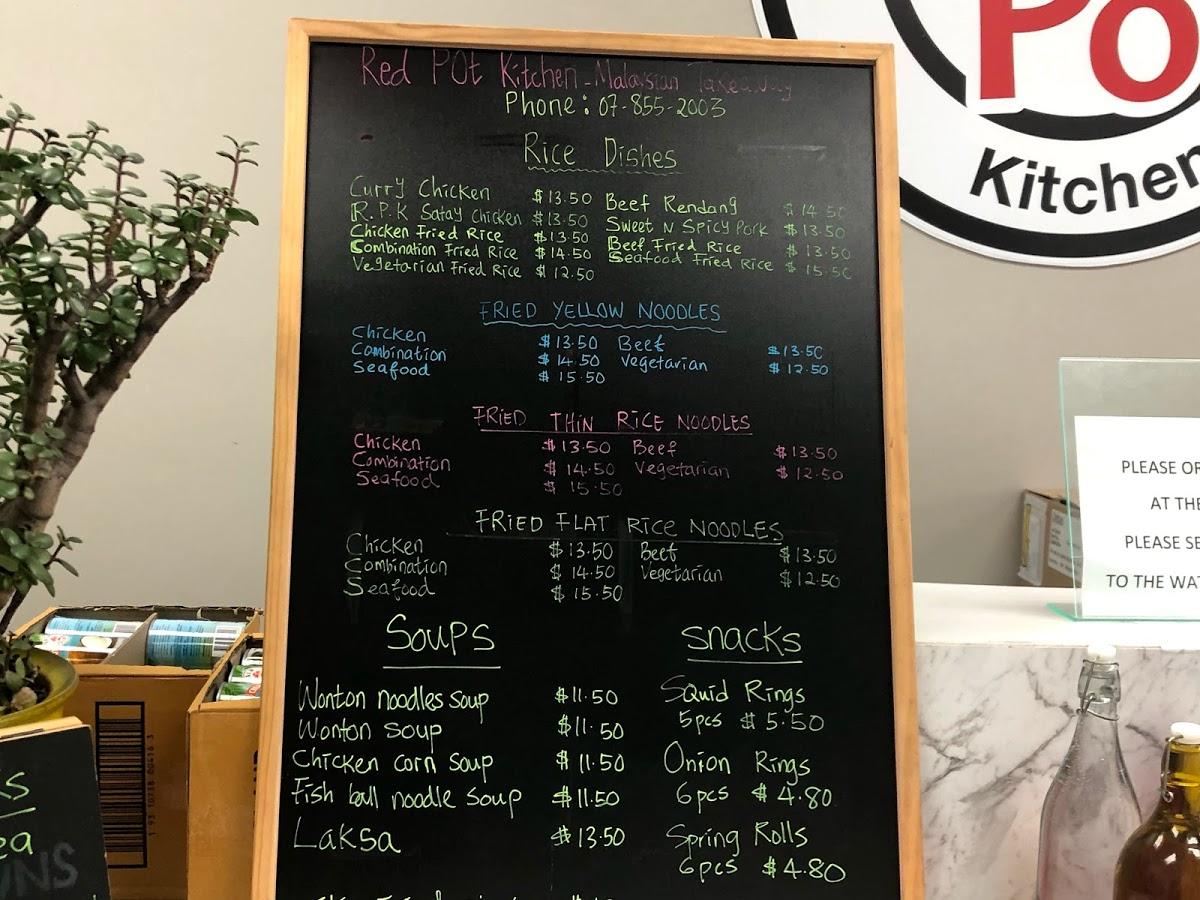 Red POt Kitchen - Malaysian Takeaway
Phone: 07-855-2003
Rice Dishes
Curry Chicken $13.50 Beef Rendang $14.50
R.P.K Satay Chicken $13.50 Sweet N Spicy Pork $13.50
Chicken Fried Rice $13.50 Beef Fried Rice $13.50
Combination Fried Rice $14.50 Seafood Fried Rice $15.50
Vegetarian Fried Rice $12.50
FRIED YELLOW NOODLES
Chicken $13.50 Beef $13.50
Combination $14.50 Vegetarian $12.50
Seafood $15.50
FRIED THIN RICE NOODLES
Chicken $13.50 Beef $13.50
Combination $14.50 Vegetarian $12.50
Seafood $15.50
FRIED FLAT RICE NOODLES
Chicken $13.50 Beef $13.50
Combination $14.50 Vegetarian $12.50
Seafood $15.50
Soups
Wonton noodles soup $11.50
Wonton soup $11.50
Chicken corn soup $11.50
Fish ball noodle soup $11.50
Laksa $13.50
snacks
Squid Rings
5pcs $5.50
Onion Rings
6pcs $4.80
Spring Rolls
6pcs $4.80
Po
Kitchen
PLEASE OR
AT THE
PLEASE SE
TO THE WAT